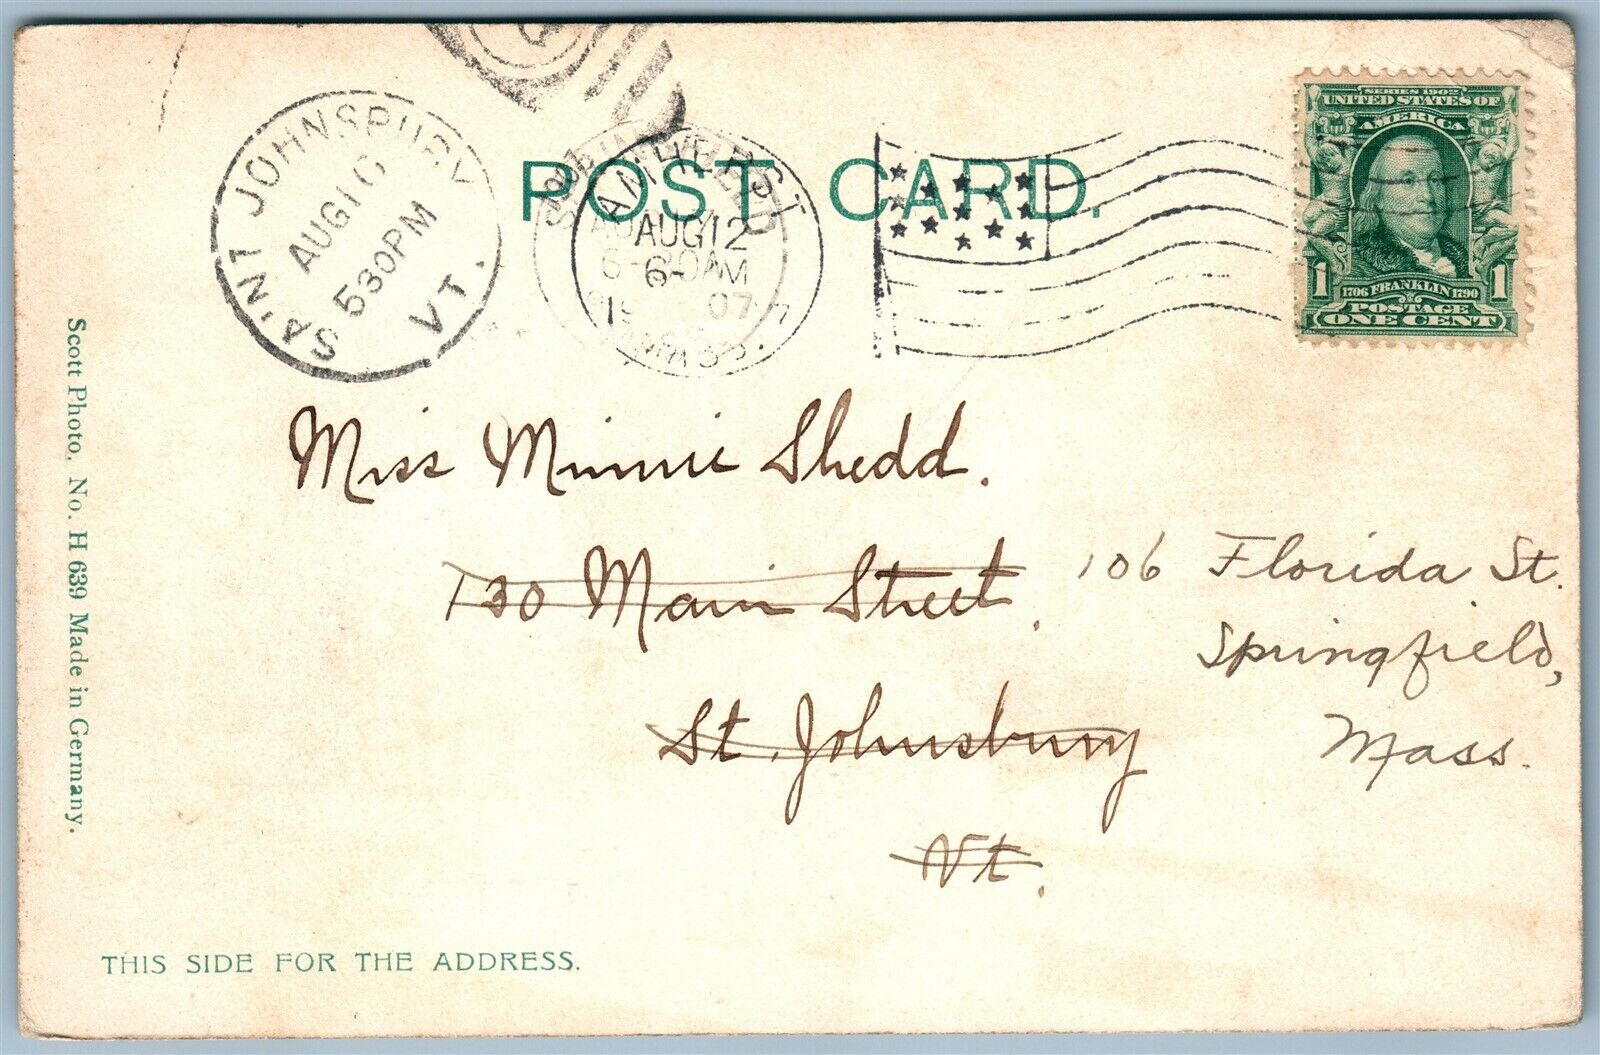 SA'NT JOHNSBURY
AUG 16
530PM
VT.
POST CARD.
AMHERST
AUG 12
6-
MASS.
SERIES 1902
UNITED STATES OF
AMERICA
1706 FRANKLIN 1790
1 1
POSTAGE
ONE CENT
Miss Minnie Shedd.
130 Main Street.
St. Johnsbury
Vt.
106 Florida St.
Springfield,
Mass.
Scott Photo. No. H 639 Made in Germany.
THIS SIDE FOR THE ADDRESS.